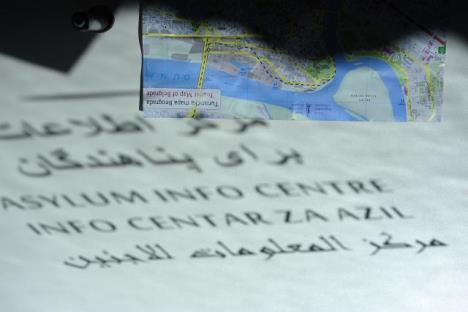 Turistička mapa Beograda
Tourist Map of Belgrade
مرکز اطلاعات
برای پناهندگان
ASYLUM INFO CENTRE
INFO CENTAR ZA AZIL
مركز المعلومات للاجئين